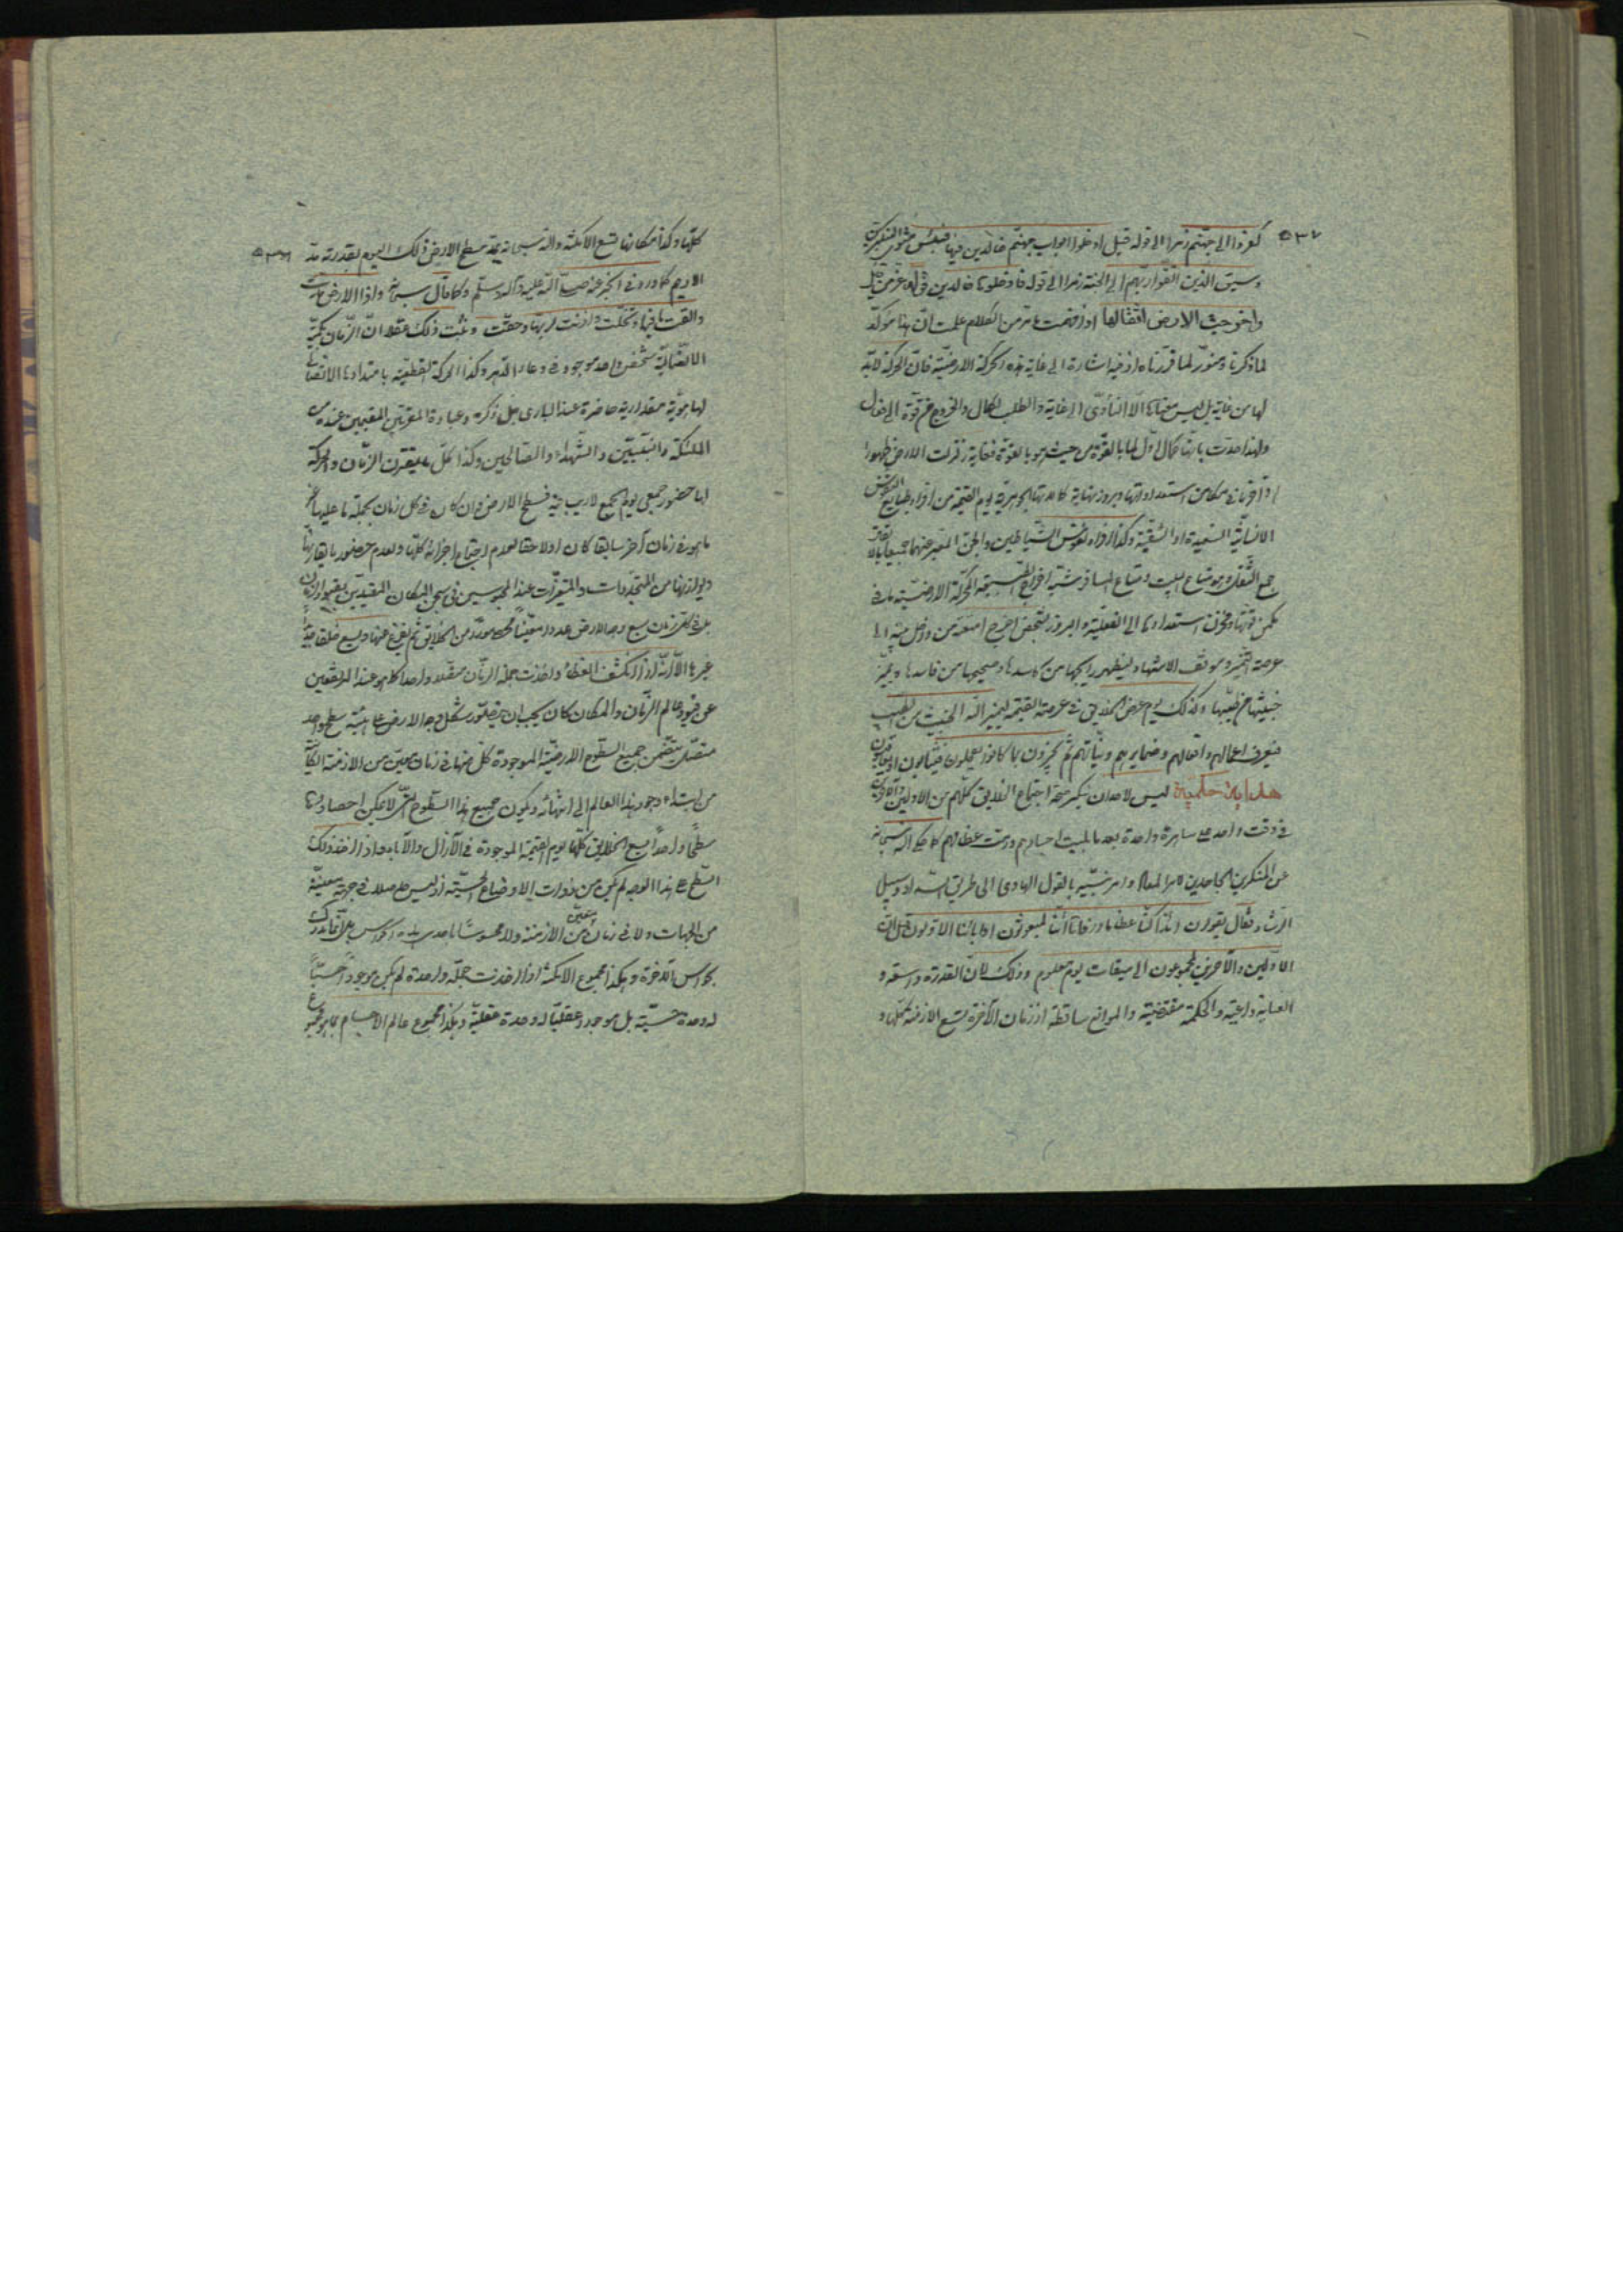 ٥٣٧
كفروا الى جهنم زمرا الى قوله قيل ادخلوا ابواب جهنم خالدين فيها فبئس مثوى المتكبرين
وسيق الذين اتقوا ربهم الى الجنة زمرا الى قوله فادخلوها خالدين قوله عز من قائل
واخرجت الارض اثقالها اذا فهمت ما مر من الكلام علمت ان هذا مؤكد
لما ذكرنا ومنور لما قررناه اذ فيه اشارة الى غاية هذه الحركة الارضية فان الحركة لابد
لها من غاية بل ليس معناها الا التأدى الى غاية والطلب لكمال والخروج من قوة الى فعل
ولهذا حدت بانها كمال اول لما بالقوة من حيث هو بالقوة فغاية زلزلت الارض ظهور
الانسانية السعيدة او الشقية وكذا افراد نفوس الشياطين والجن المعبر عنهما جميعا بالاثقال
جمع الثقل وهو متاع البيت ومتاع المسافر
يكمن قوتها ومخزن استعدادها الى الفعلية والبروز كشخص اخرج امتعة من داخل بيته الى
عرصة التميز وموقف الاشهاد ليظهر رايجها من كاسدها وصحيحها من فاسدها ويميز
خبيثها من طيبها وكذلك يوم عرض الخلايق فى عرصة القيمة ليميز الله الخبيث من الطيب
فيعرف اعمالهم وافعالهم وضمايرهم ونياتهم ثم يجزون بما كانوا يعملون
هداية حكمية ليس لاحد ان ينكر صحة اجتماع الخلايق كلهم من الاولين والاخرين
فى وقت واحد على ساهرة واحدة بعد ما بليت اجسادهم ورمت عظامهم كما حكى الله سبحانه
عن المنكرين الجاحدين لامر المعاد وامر نبيه بالقول الهادى الى طريق السداد وسبيل
الرشاد فقال يقولون ائذا كنا عظاما ورفاتا ائنا لمبعوثون او اباؤنا الاولون قل ان
الاولين والاخرين لمجموعون الى ميقات يوم معلوم وذلك لان القدرة واسعة و
العناية داعية والحكمة مقتضية والموانع ساقطة اذ زمان الاخرة يسع الازمنة كلها و
٥٣٨
كلها وكذا مكانها يسع الامكنة والله سبحانه يمد سطح الارض ذلك اليوم بقدرته مد
الاديم كما ورد فى الخبر عنه صلى الله عليه وآله وسلم وكما قال سبحانه واذا الارض مدت
والقت ما فيها وتخلت واذنت لربها وحقت وثبت ذلك عقلا ان الزمان بكميته
الاتصالية شخص واحد موجود فى وعاء الدهر وكذا الحركة القطعية بامتدادها الاتصالى
لها هوية مقدارية حاضرة عند البارى جل ذكره وعبادة المقربين المقيمين عنده من
الملئكة والنبيين والشهداء والصالحين وكذا كل ما يقترن الزمان والحركة
لها حضور جمعى يوم الجمع لا ريب فيه فسطح الارض وان كان فى كل زمان بجملة ما عليها غير
ما هو فى زمان آخر سابقا كان او لاحقا لعدم اجتماع اجزائه كلها ولعدم حضور
من المتجددات والمتغيرات عند المحبوسين فى سجن المكان المقيدين بقيود الزمان
وفى كل زمان يسع وجه الارض عددا معينا من الخلايق ثم يفرغ عنها ويسع خلقا
غيرها الا انه اذا انكشف الغطاء واخذت جملة الزمان متصلا واحدا كما هو عند المرتفعين
عن قيود عالم الزمان والمكان كان يجب ان يتصور شكل وجه الارض على هيئة سطح واحد
متصل يتضمن جميع السطوح الارضية الموجودة كل منها فى زمان معين من الازمنة
من ابتداء وجود هذا العالم الى انتهائه ويكون جميع هذا السطوح التى لا يمكن احصاؤها
سطحا واحدا يسع الخلايق كلها يوم القيمة الموجودة فى الآزال والآباد واذا اخذ ذلك
السطح على هذا الوجه لم يكن من ذوات الاوضاع الحسية اذ ليس حاصلا فى جهة معينة
من الجهات ولا فى زمان معين من الازمنة ولا محسوسا باحدى هذه الحواس بل انما يدرك
بحواس الآخرة وهكذا مجموع الامكنة اذا اخذت جملة واحدة لم يكن موجودا حسيا
له وحدة حسية بل موجودا عقليا له وحدة عقلية وهكذا مجموع عالم الاجسام بما هو مجموع